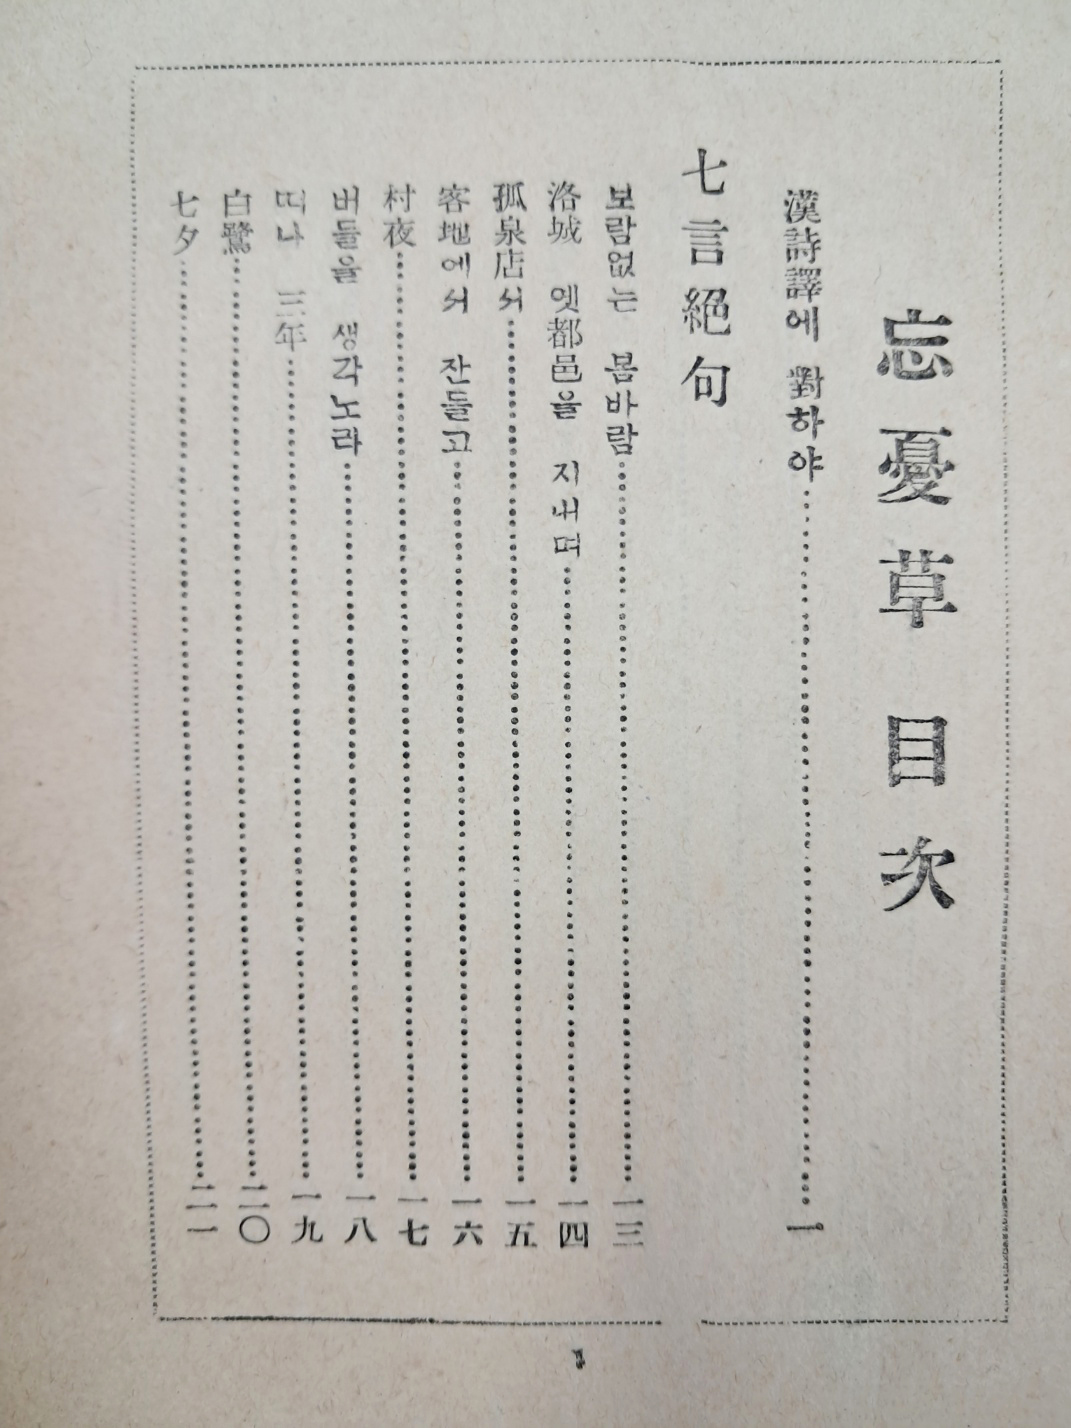 忘憂草 目次
漢詩譯에 對하야 一
七言絕句
보람없는 봄바람 一三
洛城 옛都邑을 지내며 一四
孤泉店서 一五
客地에서 잔들고 一六
村夜 一七
버들을 생각노라 一八
띠나 三年 一九
白鷺 二〇
七夕 二一
1